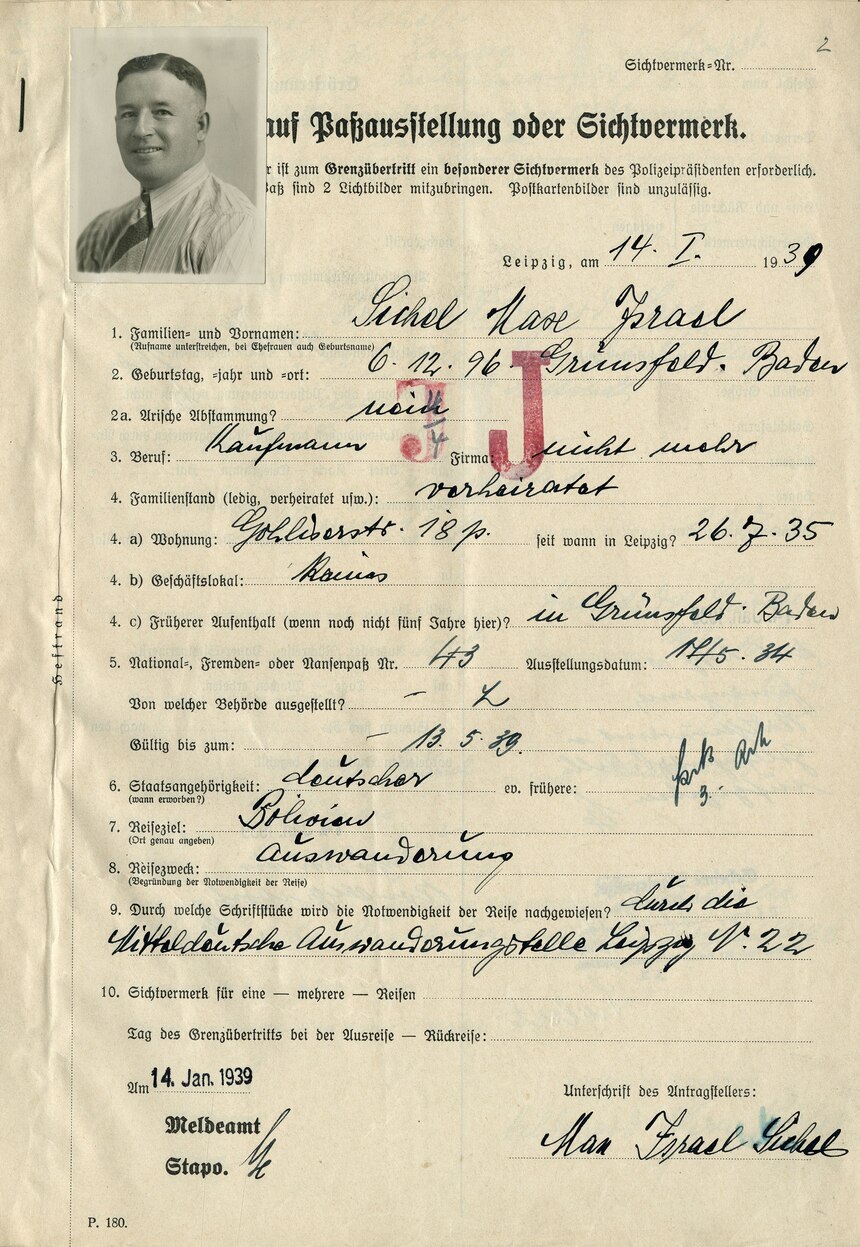 2
Sichtvermerk-Nr.
auf Paßausstellung oder Sichtvermerk.
r ist zum Grenzübertritt ein besonderer Sichtvermerk des Polizeipräsidenten erforderlich.
aß sind 2 Lichtbilder mitzubringen. Postkartenbilder sind unzulässig.
Leipzig, am 14. I. 1939
1. Familien- und Vornamen: Sichel Max Israel
(Rufname unterstreichen, bei Ehefrauen auch Geburtsname)
2. Geburtstag, -jahr und -ort: 6. 12. 96. Grünsfeld. Baden
2a. Arische Abstammung? nein
J J
3. Beruf: Kaufmann Firma: nicht mehr
4. Familienstand (ledig, verheiratet usw.): verheiratet
4. a) Wohnung: Gohliserstr. 18 p. seit wann in Leipzig? 26. 7. 35
4. b) Geschäftslokal: Keines
4. c) Früherer Aufenthalt (wenn noch nicht fünf Jahre hier)? in Grünsfeld. Baden
5. National-, Fremden- oder Nansenpaß Nr. 43 Ausstellungsdatum: 14/5. 34
Von welcher Behörde ausgestellt? –
Gültig bis zum: – 13. 5. 39.
6. Staatsangehörigkeit: deutscher ev. frühere:
(wann erworben?)
7. Reiseziel: Bolivien
(Ort genau angeben)
8. Reisezweck: Auswanderung
(Begründung der Notwendigkeit der Reise)
9. Durch welche Schriftstücke wird die Notwendigkeit der Reise nachgewiesen? durch die
Mitteldeutsche Auswanderungstelle Leipzig N. 22
10. Sichtvermerk für eine — mehrere — Reisen
Tag des Grenzübertritts bei der Ausreise — Rückreise:
Am 14. Jan. 1939
Unterschrift des Antragstellers:
Meldeamt
Stapo.
Max Israel Sichel
P. 180.
Heftrand